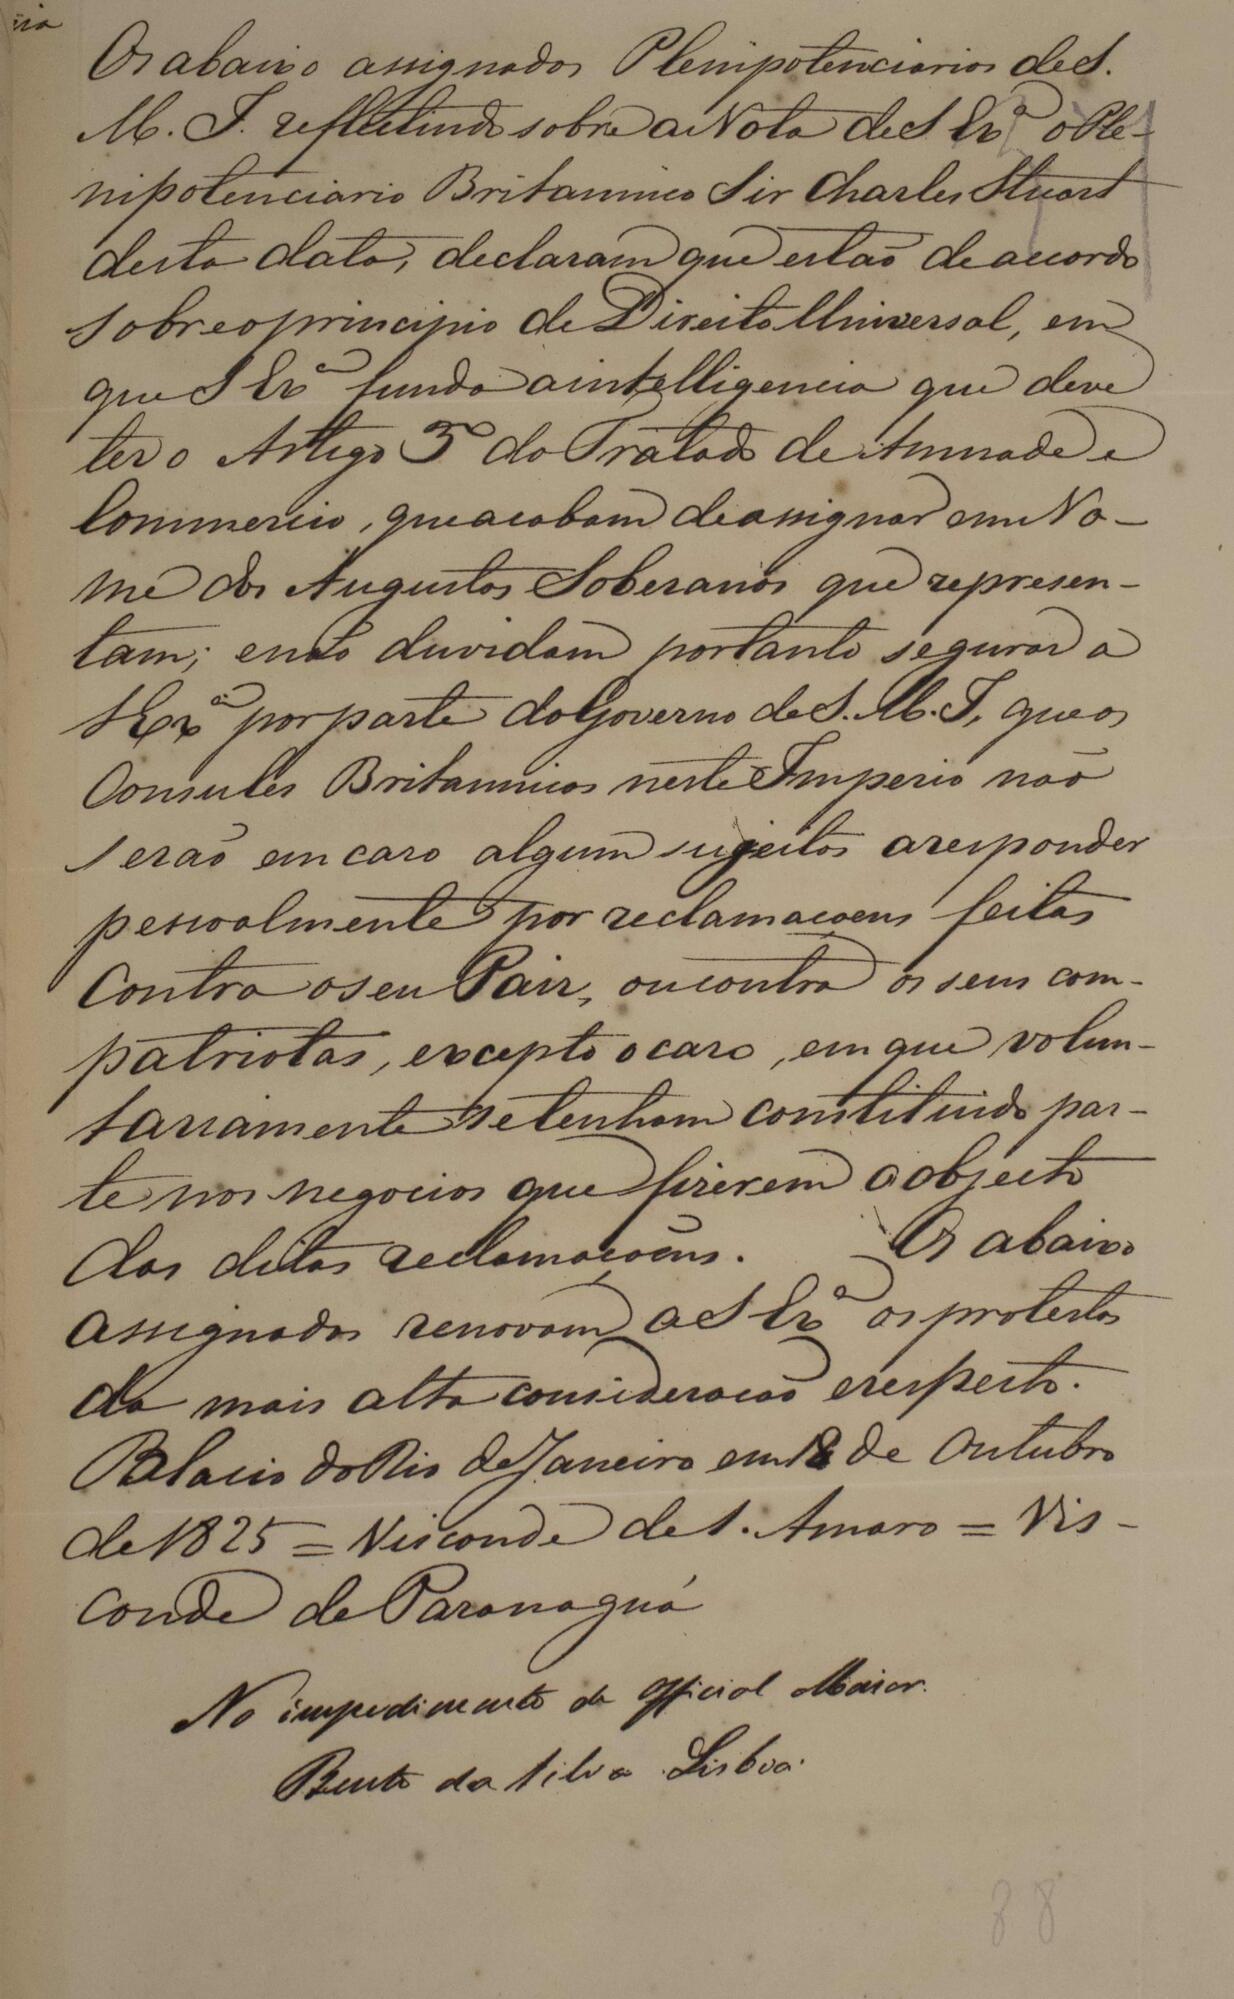 Os abaixo assignados Plenipotenciarios de S.
M. I. reflectindo sobre a Nota de S Exª o Ple-
nipotenciario Britannico Sir Charles Stuart
desta data, declaram que estão de accordo
sobre o principio de Direito Universal, em
que S Exª funda a intelligencia que deve
ter o Artigo 3º do Tratado de Amizade e
Commercio, que acabam de assignar em No-
me dos Augustos Soberanos que represen-
tam; e não duvidam portanto segurar a
S Exª por parte do Governo de S. M. I, que os
Consules Britannicos neste Imperio não
serão em caso algum sujeitos a responder
pessoalmente por reclamaçoens feitas
Contra o seu Paiz, ou contra os seus com-
patriotas, excepto o caso, em que volun-
tariamente se tenham constituido par-
te nos negocios que fizerem o objecto
das ditas reclamaçoens. Os abaixo
assignados renovam a S Exª os protestos
da mais alta consideração e respeito.
Palacio do Rio de Janeiro em 18 de Outubro
de 1825 = Visconde de S. Amaro = Vis-
conde de Paranaguá
No impedimento do Official Maior.
Bento da Silva Lisboa.
38